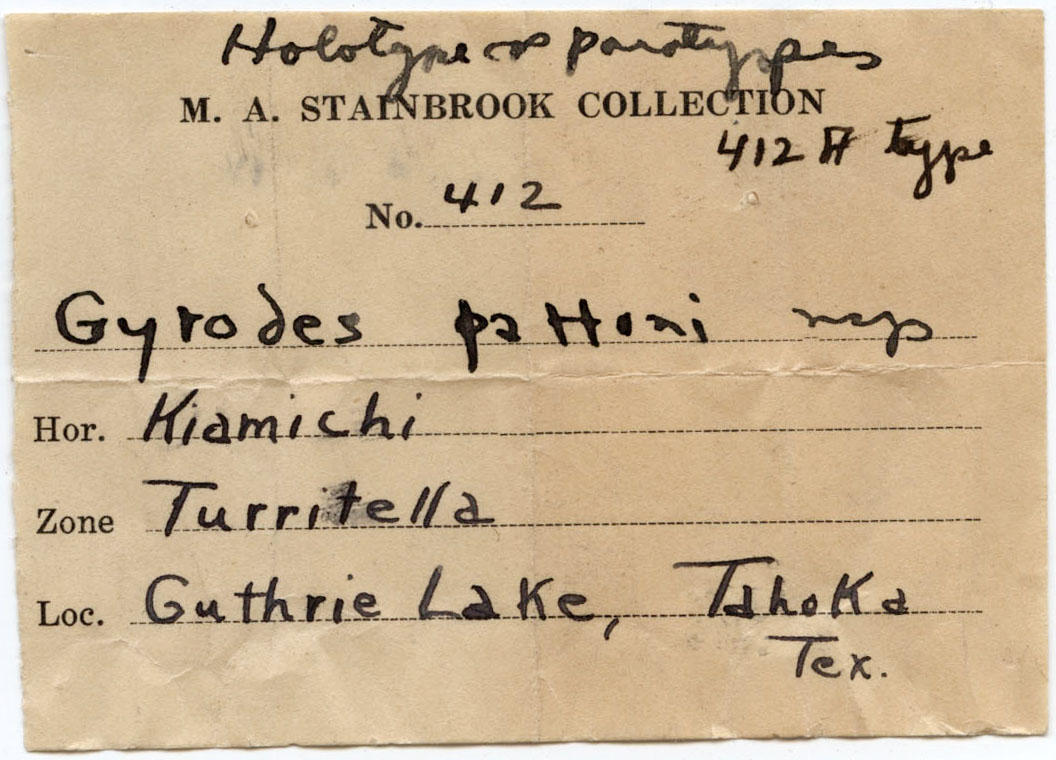 Holotype & paratypes
M. A. STAINBROOK COLLECTION
412 A type
No. 412
Gyrodes pattoni nsp
Hor. Kiamichi
Zone Turritella
Loc. Guthrie Lake, Tahoka
Tex.